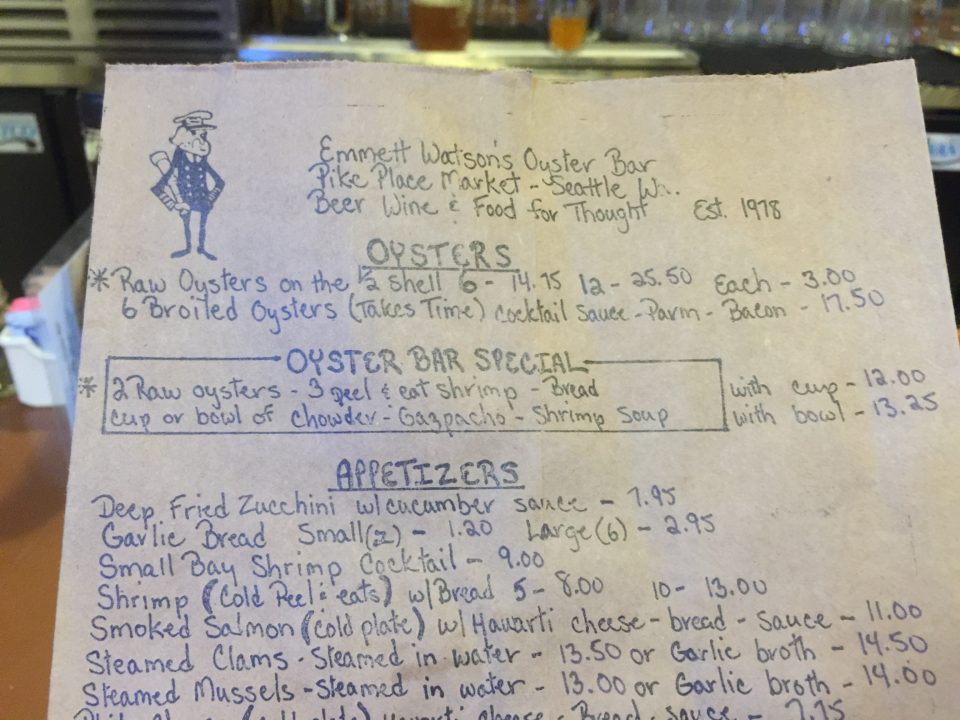 Emmett Watson's Oyster Bar
Pike Place Market - Seattle
Beer Wine & Food for Thought Est. 1978
OYSTERS
* Raw Oysters on the 1/2 shell 6 - 14.75 12 - 25.50 Each - 3.00
6 Broiled Oysters (Takes Time) cocktail sauce - Parm - Bacon - 17.50
OYSTER BAR SPECIAL
* 2 Raw oysters - 3 peel & eat shrimp - Bread with cup - 12.00
cup or bowl of chowder - Gazpacho - Shrimp Soup with bowl - 13.25
APPETIZERS
Deep Fried Zucchini w/cucumber sauce - 7.95
Garlic Bread Small(2) - 1.20 Large(6) - 2.95
Small Bay Shrimp Cocktail - 9.00
Shrimp (Cold Peel & eats) w/Bread 5 - 8.00 10 - 13.00
Smoked Salmon (cold plate) w/Havarti cheese - bread - sauce - 11.00
Steamed Clams - Steamed in water - 13.50 or Garlic broth - 14.50
Steamed Mussels - Steamed in water - 13.00 or Garlic broth - 14.00
cheese - Bread - sauce -